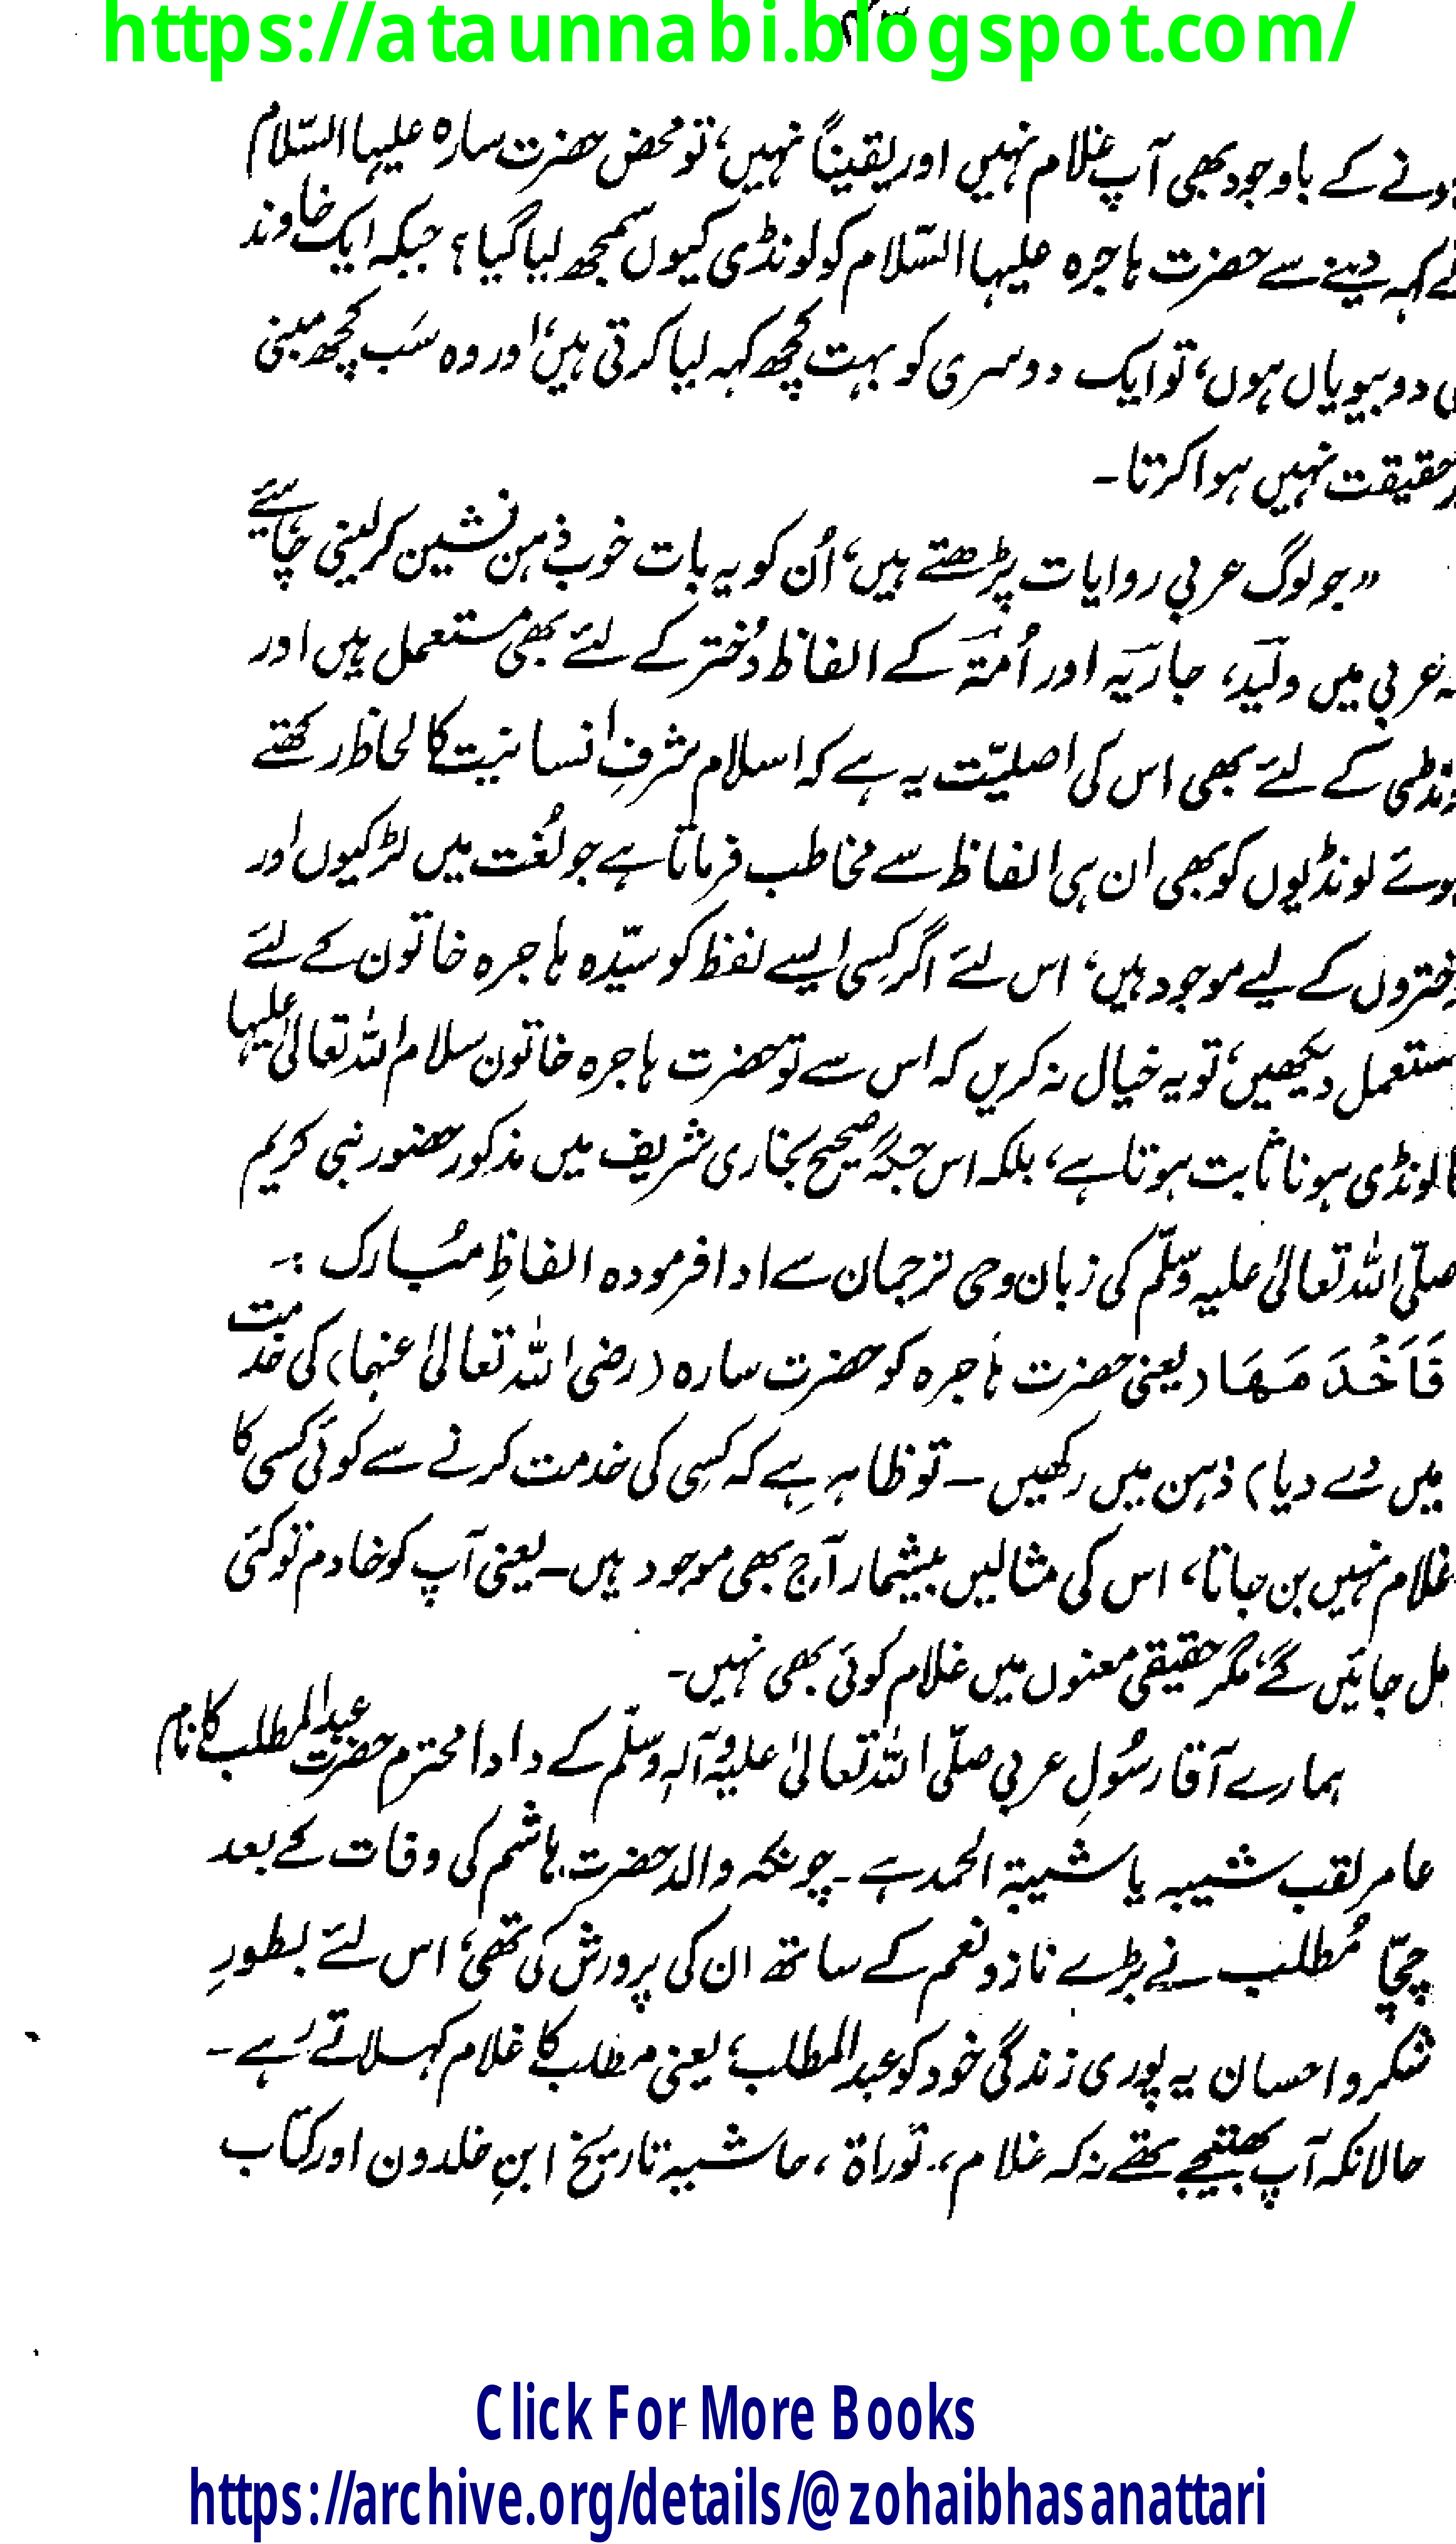 https://ataunnabi.blogspot.com/
ہونے کے باوجود بھی آپ غلام نہیں اور یقیناً نہیں، تو محض حضرت سارہ علیہا السّلام
کے کہہ دینے سے حضرت ہاجرہ علیہا السّلام کو لونڈی کیوں سمجھ لیا گیا؟ جبکہ ایک خاوند
کی دو بیویاں ہوں، تو ایک دوسری کو بہت کچھ کہہ لیا کرتی ہیں، اور وہ سَب کچھ مبنی
بر حقیقت نہیں ہوا کرتا۔
”جو لوگ عربی روایات پڑھتے ہیں، اُن کو یہ بات خوب ذہن نشین کر لینی چاہئیے
کہ عربی میں ولید، جاریَہ اور اُمتہ کے الفاظ دُختر کے لئے بھی مستعمل ہیں اور
لونڈی کے لئے بھی اس کی اصلیّت یہ ہے کہ اسلام شرفِ انسانیت کا لحاظ رکھتے
ہوئے لونڈیوں کو بھی ان ہی الفاظ سے مخاطب فرماتا ہے جو لُغت میں لڑکیوں اور
دختروں کے لیے موجود ہیں، اس لئے اگر کسی ایسے لفظ کو سیّدہ ہاجرہ خاتون کے لئے
مستعمل دیکھیں، تو یہ خیال نہ کریں کہ اس سے تو حضرت ہاجرہ خاتون سلام اللہ تعالیٰ علیہا
کا لونڈی ہونا ثابت ہوتا ہے، بلکہ اس جگہ صحیح بخاری شریف میں مذکور حضور نبی کریم
صلّی اللہ تعالیٰ علیہ وسلّم کی زبان وحی ترجمان سے ادا فرمودہ الفاظِ مُبارک :۔
فَاَخْدَمَہَا (یعنی حضرت ہاجرہ کو حضرت سارہ (رضی اللہ تعالیٰ عنہما) کی خدمت
میں دے دیا) ذہن میں رکھیں ۔ تو ظاہر ہے کہ کسی کی خدمت کرنے سے کوئی کسی کا
غلام نہیں بن جاتا، اس کی مثالیں بیشمار آج بھی موجود ہیں۔ یعنی آپ کو خادم تو کئی
مل جائیں گے، مگر حقیقی معنوں میں غلام کوئی بھی نہیں۔
ہمارے آقا رسُولِ عربی صلّی اللہ تعالیٰ علیہ وآلہٖ وسلّم کے دادا محترم حضرت عبدالمطلب کا نام
عامر لقب شیبہ یا شیبۃ الحمد ہے۔ چونکہ والد حضرت ہاشم کی وفات کے بعد
چچّا مُطلب نے بڑے ناز و نعم کے ساتھ ان کی پرورش کی تھی، اس لئے بطورِ
شکر و احسان یہ پوری زندگی خود کو عبدالمطلب، یعنی مطلب کا غلام کہلاتے رہے۔
حالانکہ آپ بھتیجے تھے نہ کہ غلام،۔ توراۃ ، حاشیہ تاریخ ابنِ خلدون اور کتاب
Click For More Books
https://archive.org/details/@zohaibhasanattari